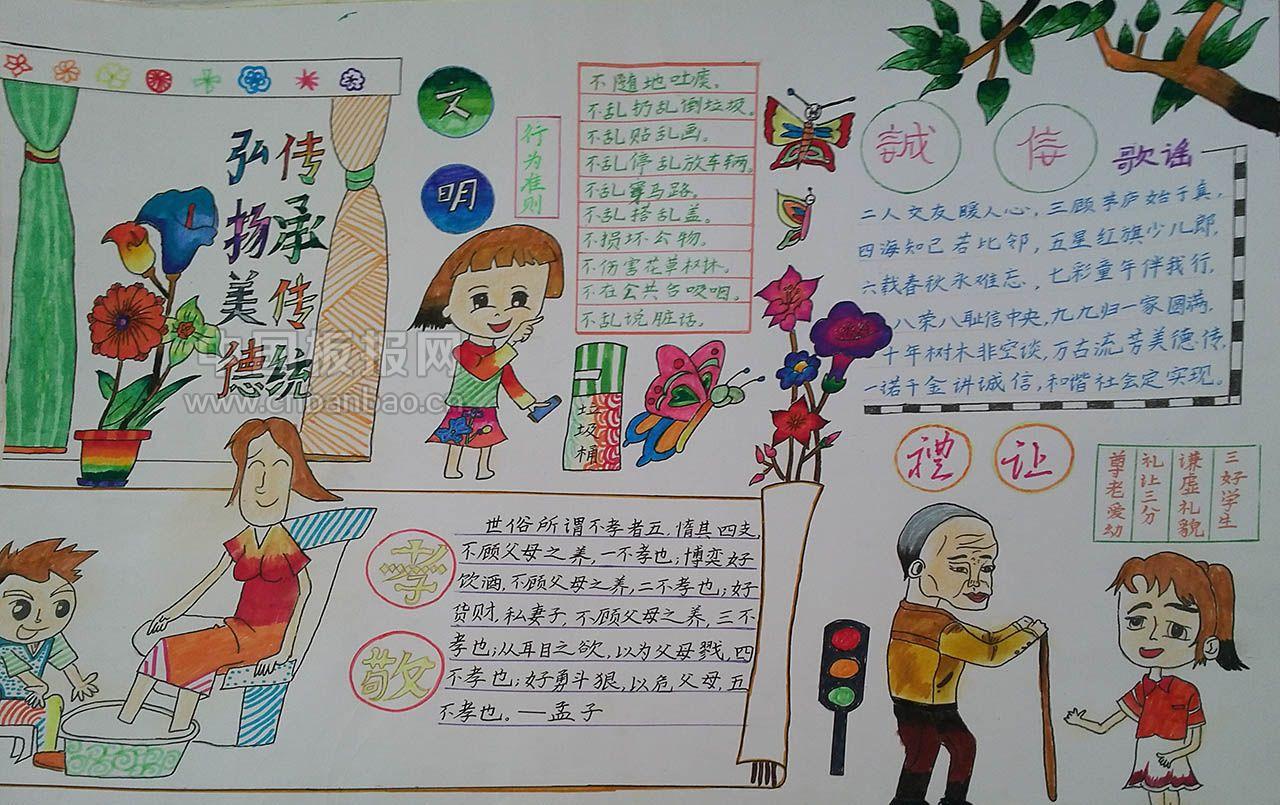 弘扬美德
传承传统
文明
行为准则
不随地吐痰。
不乱扔乱倒垃圾。
不乱贴乱画。
不乱停乱放车辆。
不乱穿马路。
不乱搭乱盖。
不损坏公物。
不伤害花草树林。
不在公共台吸烟。
不乱说脏话。
垃圾桶
誠信
歌谣
二人交友暖人心,三顾茅庐始于真,
四海知己若比邻,五星红旗少儿郎,
六载春秋永难忘,七彩童年伴我行,
八荣八耻信中央,九九归一家圆满,
十年树木非空谈,万古流芳美德传,
一诺千金讲诚信,和谐社会定实现。
孝敬
世俗所谓不孝者五,惰其四支,
不顾父母之养,一不孝也;博奕好
饮酒,不顾父母之养,二不孝也;好
货财,私妻子,不顾父母之养,三不
孝也;从耳目之欲,以为父母戮,四
不孝也;好勇斗狠,以危父母,五
不孝也。——孟子
禮让
三好学生
谦虚礼貌
礼让三分
尊老爱幼
中国板报网
www.cnbanbao.cn